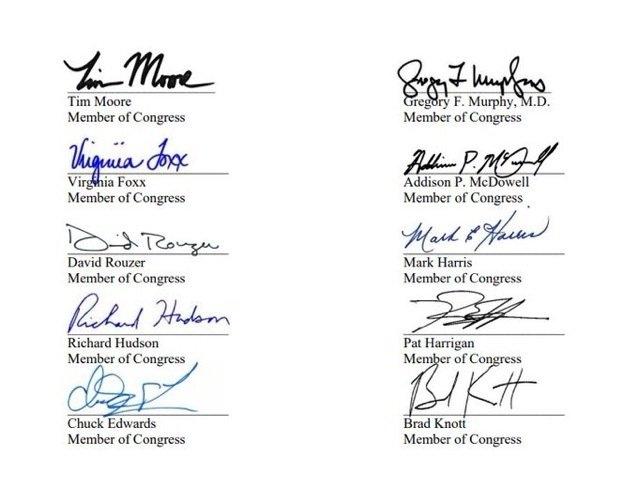 Tim Moore
Tim Moore
Member of Congress
Gregory F. Murphy
Gregory F. Murphy, M.D.
Member of Congress
Virginia Foxx
Virginia Foxx
Member of Congress
Addison P. McDowell
Addison P. McDowell
Member of Congress
David Rouzer
David Rouzer
Member of Congress
Mark E Harris
Mark Harris
Member of Congress
Richard Hudson
Richard Hudson
Member of Congress
Pat Harrigan
Member of Congress
Chuck Edwards
Member of Congress
Brad Knott
Brad Knott
Member of Congress